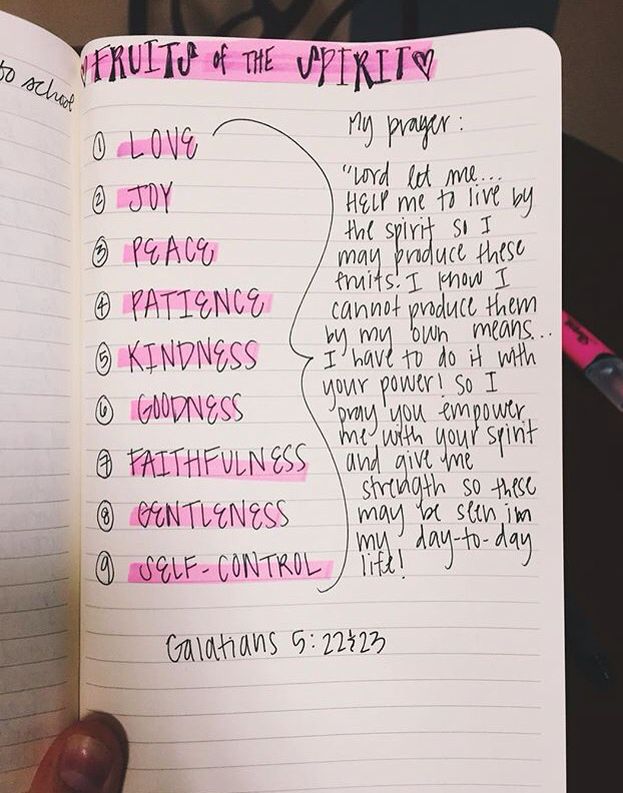 to school
♡FRUITS of THE SPIRIT♡
① LOVE
② JOY
③ PEACE
④ PATIENCE
⑤ KINDNESS
⑥ GOODNESS
⑦ FAITHFULNESS
⑧ GENTLENESS
⑨ SELF-CONTROL
My prayer:
"Lord let me...
HELP me to live by
the spirit so I
may produce these
fruits. I know I
cannot produce them
by my own means...
I have to do it with
your power! so I
pray you empower
me with your spirit
and give me
strength so these
may be seen in
my day-to-day
life!
Galatians 5:22&23